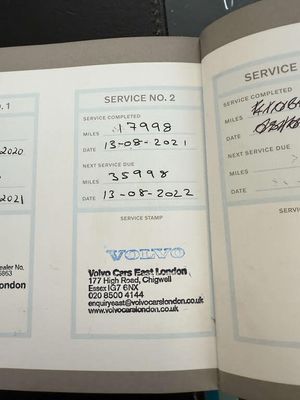 . 1
2020
2021
ealer No.
ondon
SERVICE NO. 2
SERVICE COMPLETED
MILES 17998
DATE 13-08-2021
NEXT SERVICE DUE
MILES 35998
DATE 13-08-2022
SERVICE STAMP
VOLVO
Volvo Cars East London
177 High Road, Chigwell
Essex IG7 6NX
020 8500 4144
enquiryeast@volvocarslondon.co.uk
www.volvocarslondon.co.uk
SERVICE
SERVICE COMPLETED
MILES
DATE
NEXT SERVICE DUE
MILES
DATE
SERV